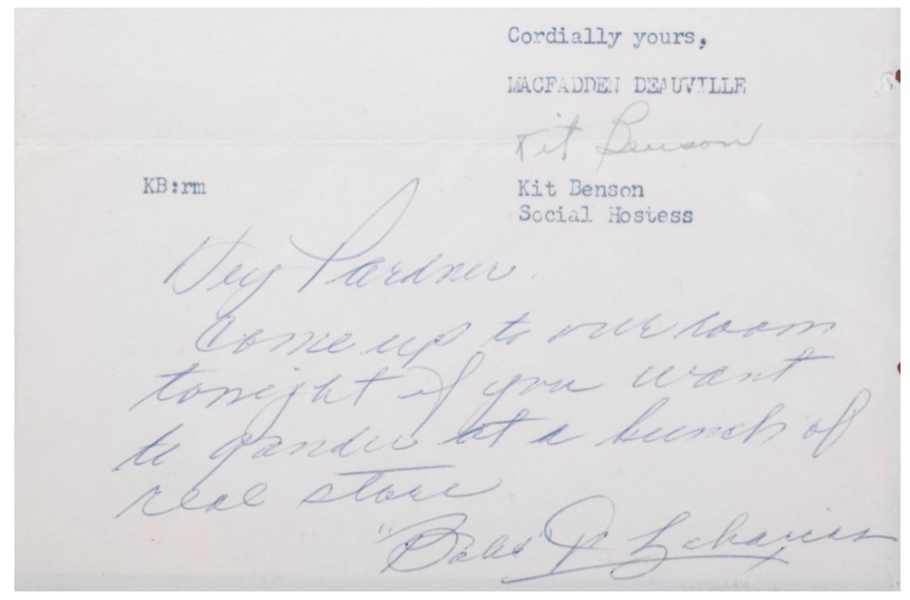 Cordially yours,
MACFADDEN DEAUVILLE
Kit Benson
KB:rm
Kit Benson
Social Hostess
Hey Pardner.
Come up to our room
tonight if you want
to gander at a bunch of
real
"Babe"